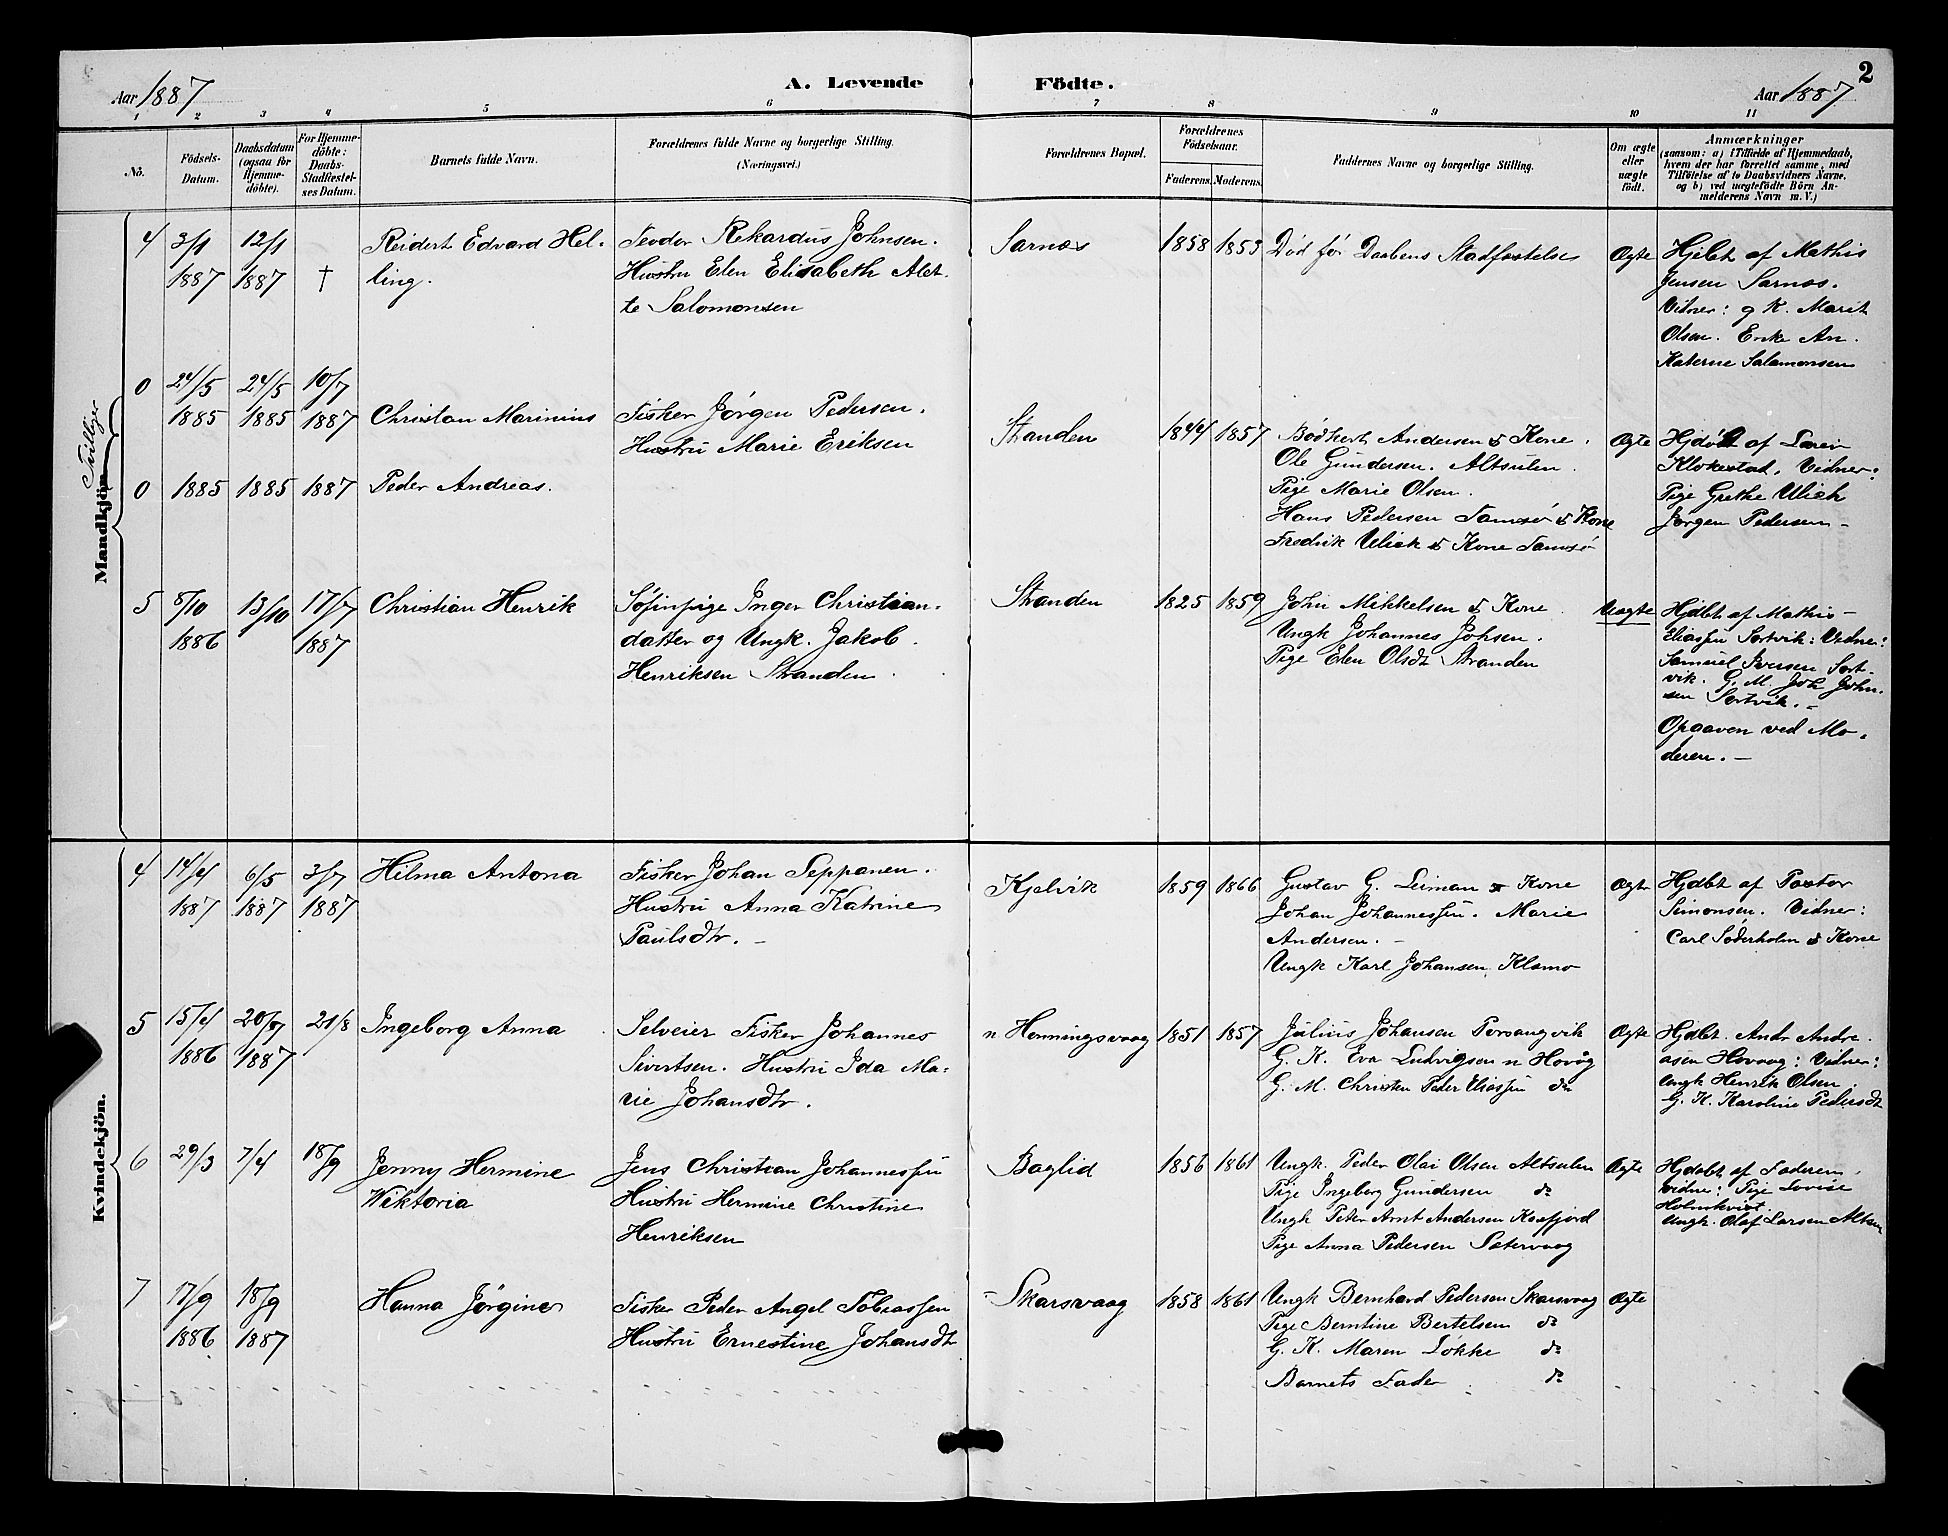 Aar 1887
A. Levende Födte.
Aar 1887
2
1 2 3 4 5 6 7 8 9 10 11
No.
Födsels-Datum.
Daabsdatum (ogsaa for Hjemme-döbte).
For Hjemme-döbte: Daabs-Stadfæstel-ses Datum.
Barnets fulde Navn.
Forældrenes fulde Navne og borgerlige Stilling.
(Næringsvei.)
Forældrenes Bopæl.
Forældrenes Födselsaar.
Faderens. Moderens.
Faddernes Navne og borgerlige Stilling.
Om ægte eller uægte födt.
Anmærkninger
(saasom: a) i Tilfælde af Hjemmedaab,
hvem der har forrettet samme, med
Tilföielse af to Daabsvidners Navne,
og b) ved uægtefödte Börn An-
melderens Navn m. V.)
Mandkjön.
Tvillger
4 3/1 1887 12/1 1887 †
Reidert Edvard Hel-
ling.
Teodor Rekardus Johnsen.
Hustru Elen Elisabeth Alet-
te Salomonsen
Sarnæs 1858 1853
Död før Daabens Stadfæstelse
Ægte
Hjdbt af Mathis
Jensen Sarnæs.
Vidner: g K. Marit
Olsen. Enke An.
Katerne Salamonsen
0 24/5 1885 24/5 1885 10/7 1887
Christan Marinius
Fisker Jørgen Pedersen.
Hustru Marie Eriksen
Stranden 1844 1857
Bodhert Andersen & Kone.
Ole Gundersen. Altsulen.
Pige Marie Olsen.
Hans Pedersen Samsø & Kone
Fredrik Ulich & Kone Samsø
Ægte
Hjdöbt af
Klokestad. Vidner:
Pige Grethe Ulich
Jørgen Pedersen -
0 1885 1885 1887
Peder Andreas.
5 8/10 1886 13/10 17/7 1887
Christian Henrik
pige Inger Christian-
datter og Ungk. Jakob
Henriksen Stranden.
Stranden 1825 1859
John Mikkelsen & Kone
Ungk Johannes Johsen.
Pige Elen Olsdt Stranden
Uægte
Hjdbt af Mathis
Eliassen Sortvik: Vidner:
Samuel Iversen Sort-
vik. G. M. Joh John-
sen Sortvik. -
Opgaven ved Mo-
deren. -
Kvindekjön.
4 14/4 1887 6/5 1887 3/7 1887
Hilma Antona
Fisker Johan Seppanen.
Hustru Anna Katrine
Paulsdtr. -
Kjelvik 1859 1866
Gustav G. Leiman & Kone
Johan Johannessen. Marie
Andersen. -
Ungk Karl Johansen. Klamo
Ægte
Hjdbt af Pastor
Simonsen. Vidner:
Carl Søderholm & Kone
5 15/4 1886 20/7 1887 21/8
Ingeborg Anna
Selveier Fisker Johannes
Sivertsen. Hustru Ida Ma-
rie Johansdtr.
n Honningsvaag 1851 1857
Julius Johansen Porsangvik
G. K. Eva Ludvigsen n Hovåg
G. M. Christen Peder Eliassen do
Ægte
Hjdbt. Andr Andre-
asen Hovaag: Vidner:
Ungk Henrik Olsen.
G. K. Karoline Pedersdt
6 29/3 7/4 18/9
Jenny Hermine
Wiktoria
Jens Christian Johannessen
Hustru Hermine Christine
Henriksen
Baglid 1856 1861
Ungk. Peder Olai Olsen Altsulen
Pige Ingeborg Gundersen do
Ungk Peter Arnt Andersen Kaafjord
Pige Anna Pedersen Sætervaag
Ægte
Hjdøbt af Faderen.
Vidne: Pige Lovise
Holmkvist.
Ungk. Olaf Larsen Altsu
7 17/9 1886 18/9 1887
Hanna Jørgine
Fisker Peder Angel Tobiassen
Hustru Ernestine Johansdtr
Skarsvaag 1858 1861
Ungk Bernhard Pedersen Skarsvaag
Pige Berntine Bertelsen do
G. K. Maren Løkke do
Barnets Fader do
Ægte